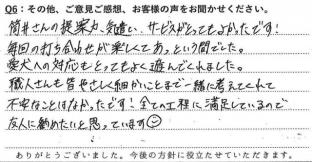 Q6：その他、ご意見ご感想、お客様の声をお聞かせください。
筒井さんの提案力、気遣い、サービスがとってもよかったです！
毎回の打ち合わせが楽しくてあっという間でした。
愛犬への対応もとってもよく遊んでくれました。
職人さんも皆やさしく細かいことまで一緒に考えてくれて
不安なことはなかったです！全ての工程に満足しているので
友人に勧めたいと思っています☺
ありがとうございました。今後の方針に役立たせていただきます。